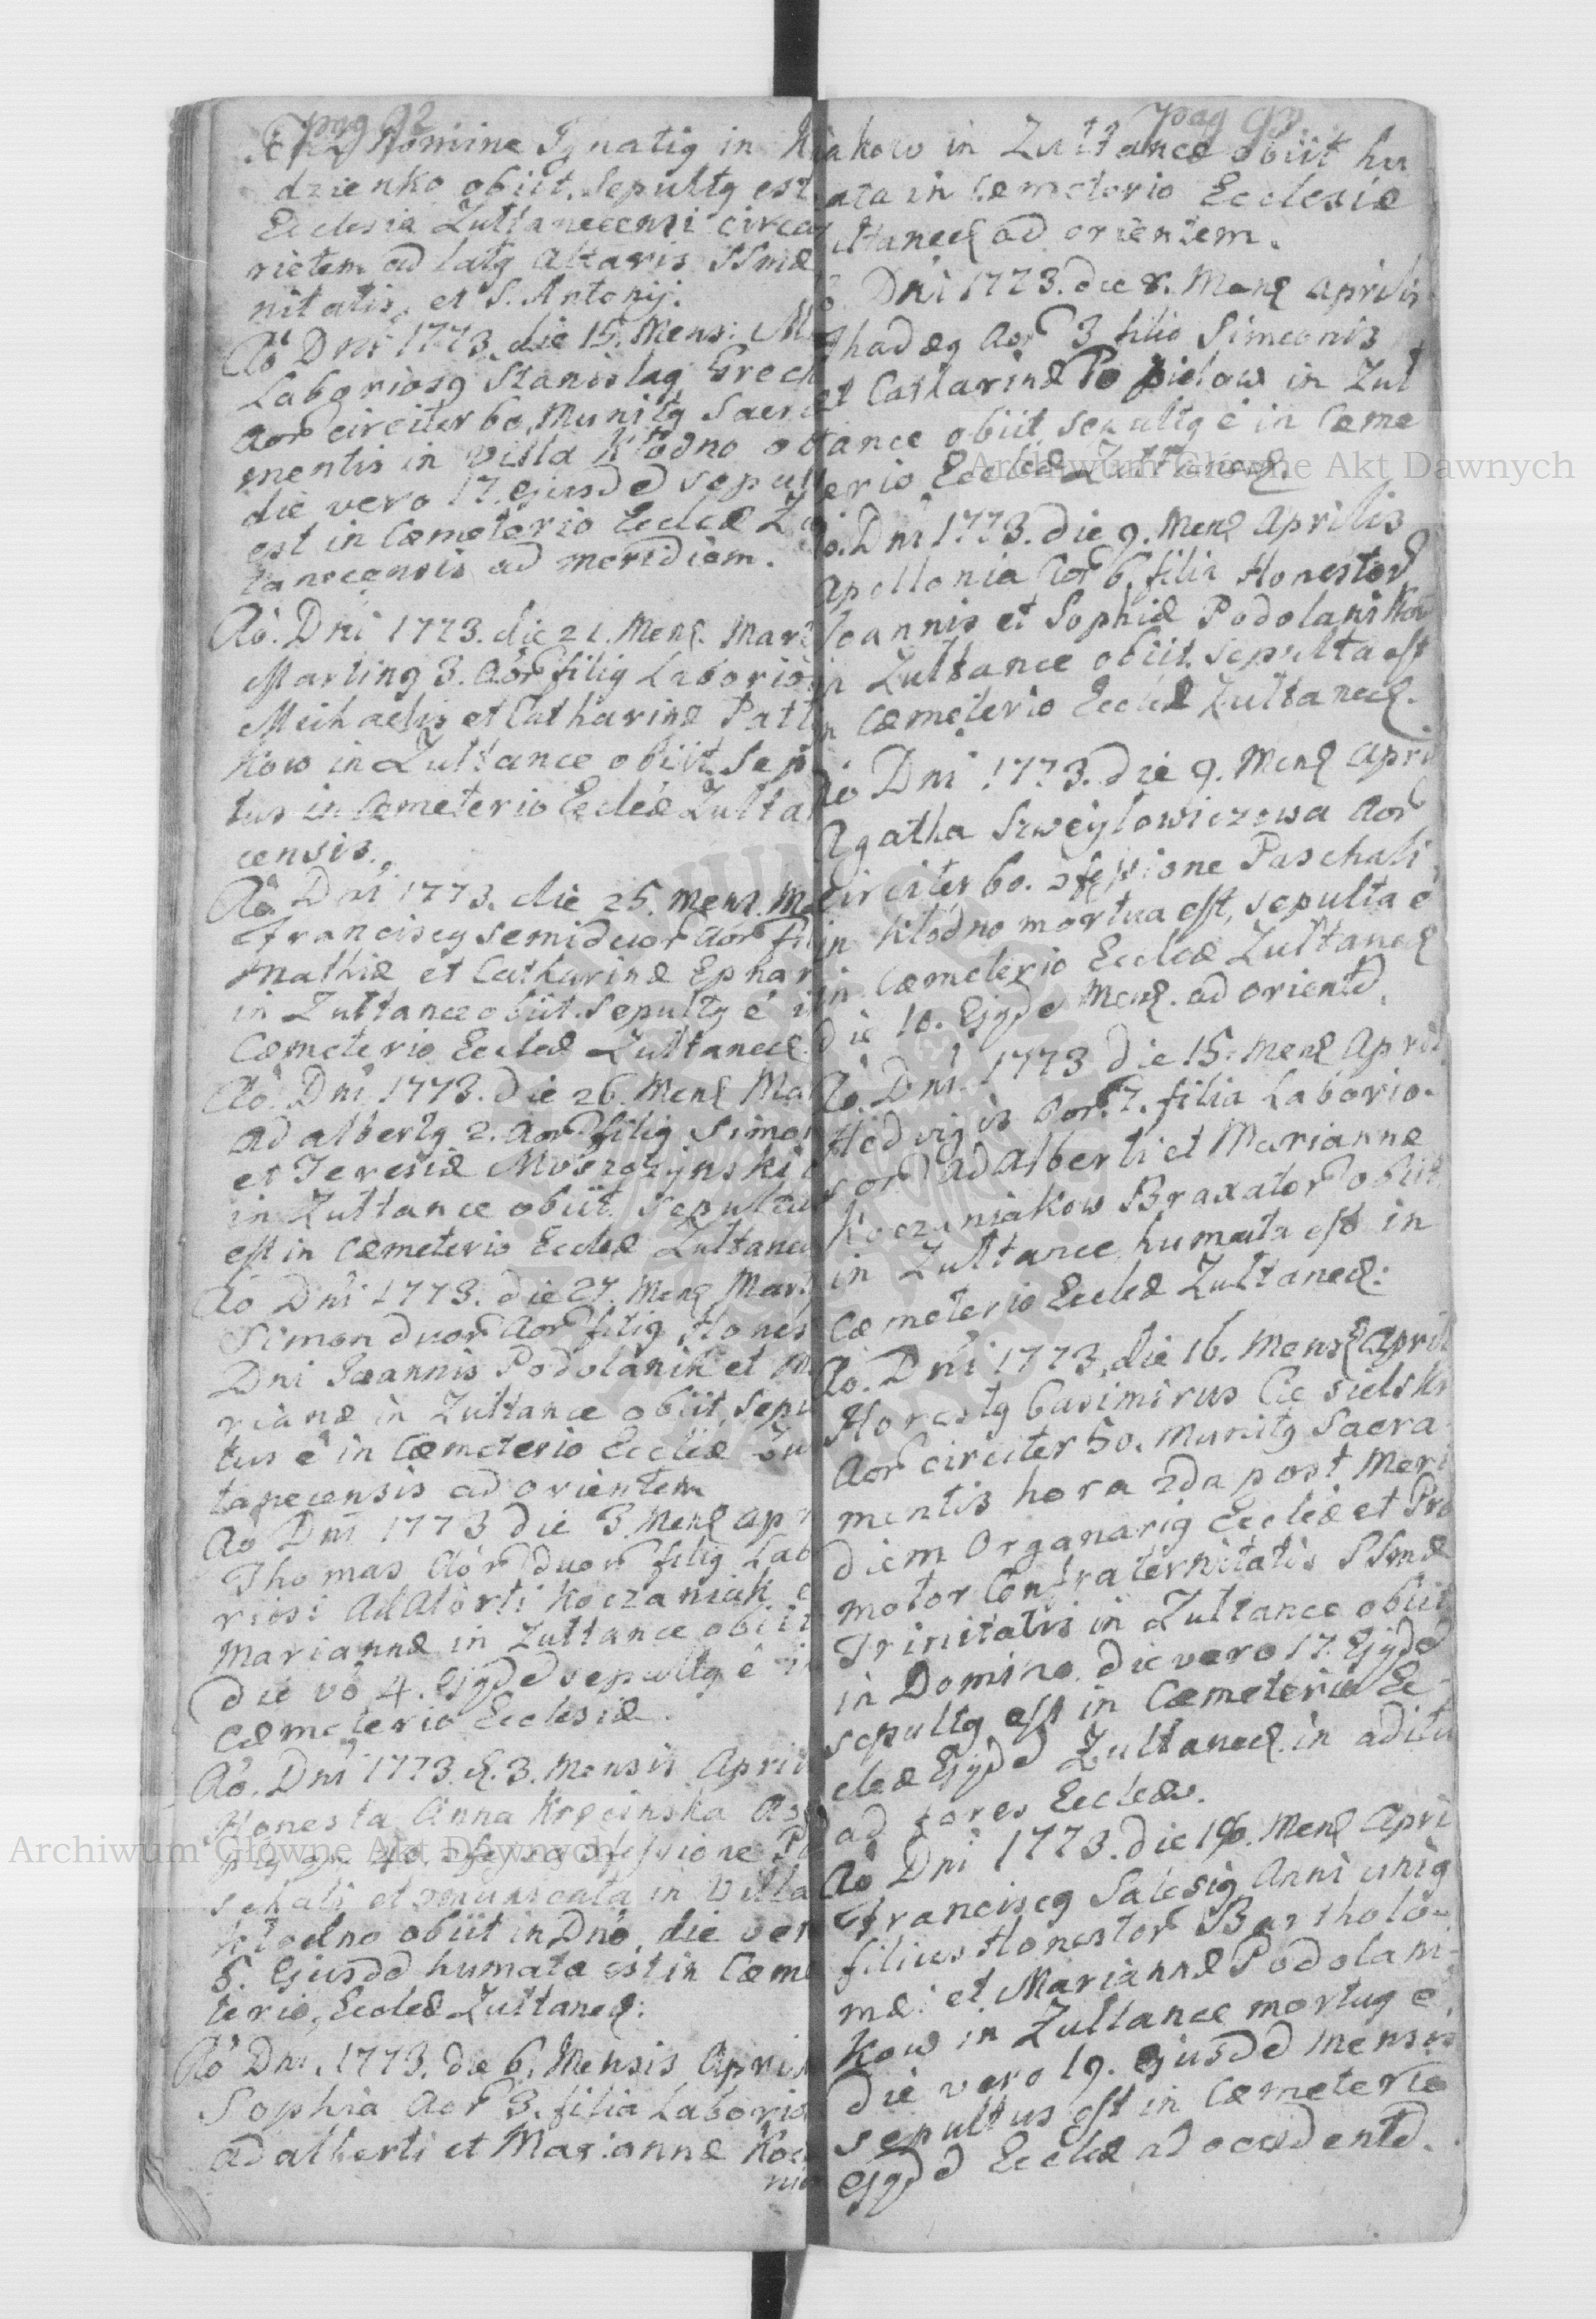 pag 92
Nomine Ignatiꝯ in
dzienko obiit, Sepultꝯ est
Ecclesia Zultanecensi circa
rietem ad latꝯ Altaris SSmæ
nitatis, et S. Antonij.
Ao Dni 1773. die 15. Mens: M
Laboriosꝯ Stanislaꝯ Grech
aor circiter 60, Munitꝯ Sacr
mentis in Villa Kłodno o
die vero 17. Ejusdd sepult
est in Cæmeterio Ecclæ Zu
tanecensis ad meridiem.
Ao. Dni 1773. die 21. Mens. Mart
Martinꝯ 3. Aor filiꝯ Laborio
Michaelis et Catharinæ Patt
kow in Zultance obiit Sep
tus in Cæmeterio Ecclæ Zulta
censis.
Ao. Dni 1773. die 25. Mens. Ma
Franciscꝯ semiduor Aor fil
Mathiæ et Catharinæ Ephar
in Zultance obiit. Sepultꝯ e i
Cæmeterio Ecclæ Zultanec.
Ao. Dni 1773. die 26. Mens Ma
Adalbertꝯ 2. Aor filiꝯ Simo
et Teresiæ Moszczynski
in Zultance obiit Sepultu
est in Cæmeterio Ecclæ Zultanec
Ao Dni 1773. die 27. Mens Mart
Simon duor Aor filiꝯ Hones
Dni Joannis Podolanik et M
rianæ in Zultance obiit, Sepu
tus e in Cæmeterio Ecclæ Zu
tanecensis ad orientem
Ao Dni 1773 die 3 Mens Apr
Thomas Aor duor filiꝯ Lab
riosi Adalberti Koczaniak e
Mariannæ in Zultance obiit
die vo 4. Ejꝯdd sepultꝯ e i
Cæmeterio Ecclesiæ.
Ao. Dni 1773. d. 3. Mensis Apri
Honesta Anna Krecinska Ao
40. Pa
schali et in Villa
Kłodno obiit in Dno, die ver
5. Ejusdd humata est in Cæme
terio, Ecclæ Zultanec:
Ao Dni. 1773. die 6. Mensis Apri
Sophia Aor 3. filia Laborio
Adalberti et Mariannæ Kocz
nia
pag 93
niakow in Zultance obiit hu
mata in Cæmeterio Ecclesiæ
ultanec ad orientem.
Dni 1773. die 8. Mens Aprilis
Thadæꝯ Aor 3 filio Simeonis
et Catharinæ Popielow in Zul
tance obiit sepultꝯ e in Cæme
erio Ecclæ Zultanec.
o. Dni 1773. die 9. Mens Aprilis
Apollonia Aor 6. filia Honestor
Joannis et Sophiæ Podolanikow
in Zultance obiit, sepulta est
in Cæmeterio Ecclæ Zultanec.
Ao Dni 1773. die 9. Mens Apri
Agatha Szweytowiczowa Aor
circiter 60. Paschali
in Kłodno mortua est, sepulta e
in Cæmeterio Ecclæ Zultanec
die 10. Ejꝯde Mens. ad orientd.
Ao. Dni 1773 die 15. Mens April
Hedvigis Aor 7. filia Laborio-
sor Adalberti et Mariannæ
Koczaniakow Braxator obiit
in Zultance humata est in
Cæmeterio Ecclæ Zultanec:
Ao. Dni 1773. die 16. Mens April
Honestꝯ Casimirus Ciesielski
Aor circiter 50. Munitꝯ Sacra
mentis hora 2da post Meri
diem Organariꝯ Ecclæ et Pro
motor Confraternitatis SSmæ
Trinitatis in Zultance obiit
in Domino. die vero 17. Ejꝯdd
sepultꝯ est in Cæmeterio Ec-
clæ Ejꝯdd Zultanec. in aditu
ad fores Ecclæ.
Ao Dni 1773. die 18. Mens Apri
Franciscꝯ Salesiꝯ Anni uniꝯ
filius Honestor Bartholo-
mæi et Mariannæ Podolani-
kow in Zultance mortuꝯ e,
die vero 19. ejusdd Mensis
sepultus est in Cæmeterio
Ejꝯdd Ecclæ ad occidentd.
Archiwum Główne Akt Dawnych
Archiwum Główne Akt Dawnych